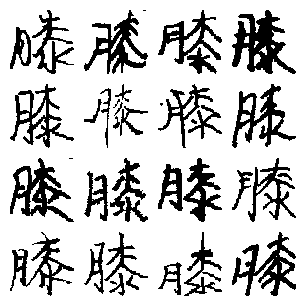 膝膝膝膝
膝膝膝膝
膝膝膝膝
膝膝膝膝